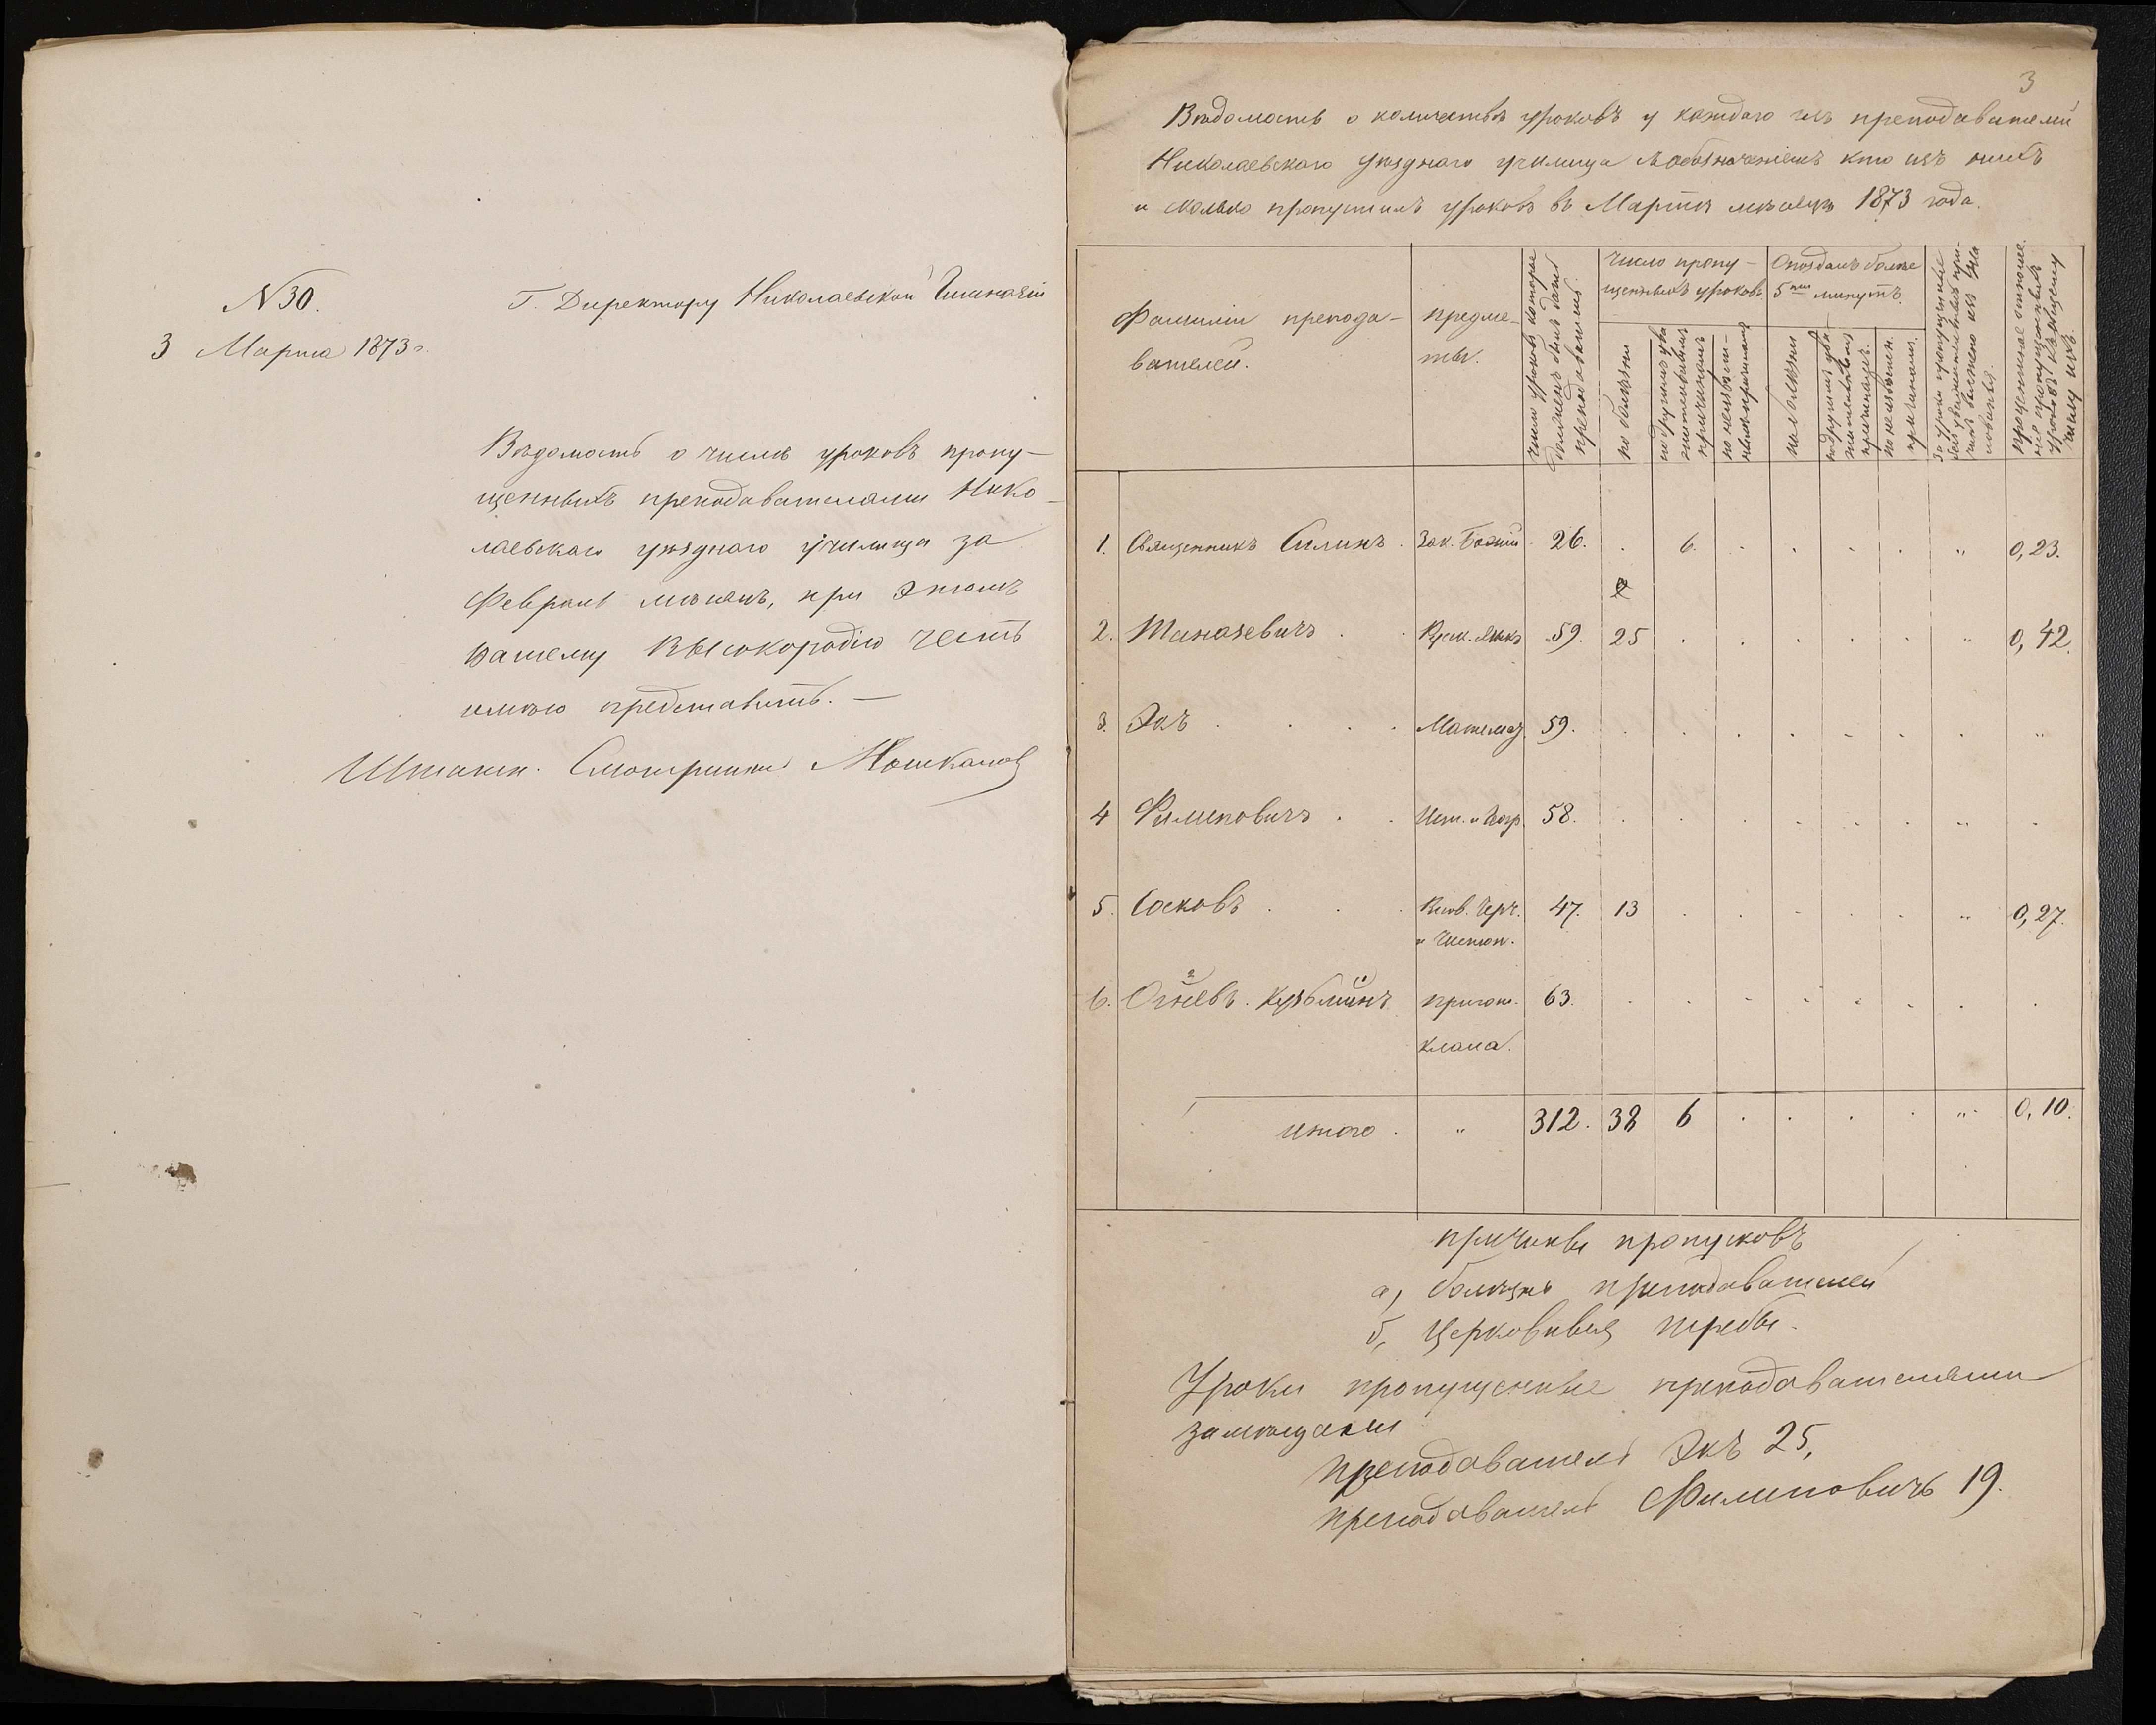 № 30.
3 Марта 1873 г.
Г. Директору Николаевской Гимназіи
Вѣдомость о числѣ уроковъ пропу-
щенныхъ преподавателями Нико-
лаевскаго уѣзднаго училища за
Февраль мѣсяцъ, при этомъ
Вашему Высокородію честь
имѣю представить. —
Штатн. Смотритель
3
Вѣдомость о количествѣ уроковъ у каждаго изъ преподавателей
Николаевскаго уѣзднаго училища съ обозначеніемъ кто изъ нихъ
и сколько пропустилъ уроковъ въ Мартѣ мѣсяцѣ 1873 года.
Фамиліи препода-
вателей.
Предме-
ты.
Число уроковъ которые
долженъ былъ дать
преподаватель
Число пропу-
щенныхъ уроковъ
по болѣзни
по другимъ ува
жительнымъ
причинамъ
по неизвѣст-
нымъ причинамъ
Опоздалъ болѣе
5ти минутъ.
по болѣзни
по другимъ ува
жительнымъ
причинамъ.
по неизвѣстн.
причинамъ.
За уроки пропущенные
без уважительныхъ при-
чинъ вычтено изъ жа
лованья.
Процентное отноше-
ніе пропущенныхъ
уроковъ къ общему
числу ихъ.
1. Священникъ Силинъ . Зак. Божій 26. . 6. . . . . „ 0,23.
2. Шиназевичъ . . Русск. Языкъ 59. 25 . . . . . „ 0,42.
3. Экъ . . . . Математ. 59. . . . . . . . „
4 Филиповичъ . . Ист. и Геогр. 58. . . . . . . „ .
5. Сосковъ . . . Рисов. Черч. 47. 13 . . . . . „ 0,27.
и Чистоп.
6. Огневъ. Кузьминъ пригот. 63. . . . . . . . .
класса.
Итого . „ 312. 38 6 . . . . „ 0,10.
Причины пропусковъ
а, болѣзнь преподавателей
б, Церковныя требы.
Уроки пропущенные преподавателями
замѣщали
преподаватель Экъ 25,
преподаватель Филиповичъ 19.